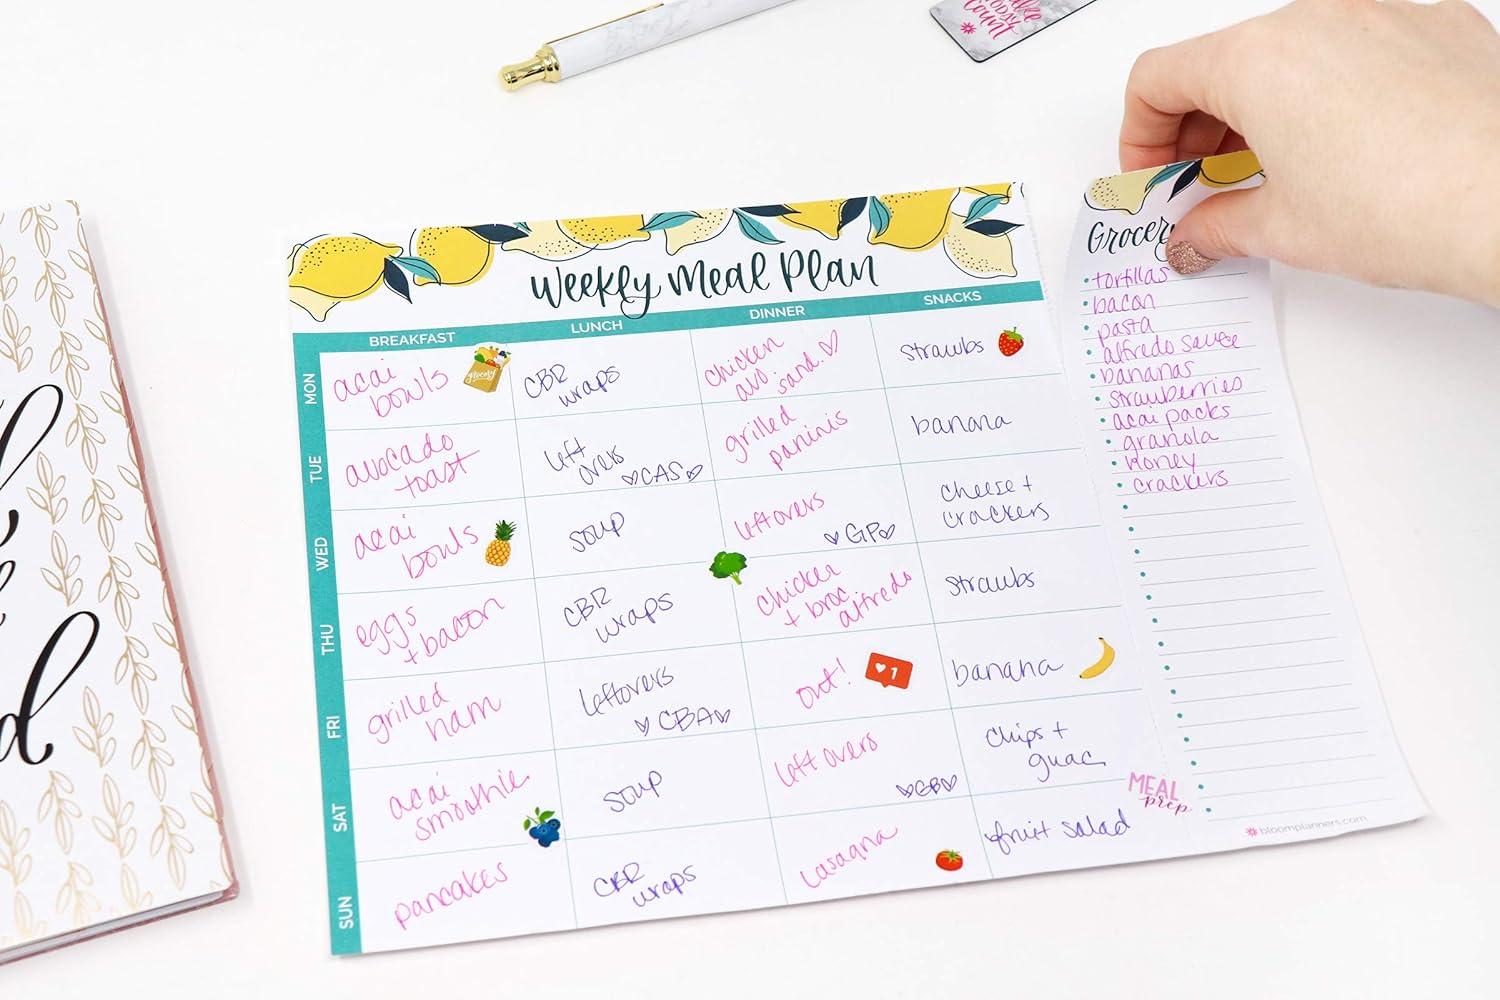 make
today
count
Weekly Meal Plan
BREAKFAST LUNCH DINNER SNACKS
MON
acai
bowls
grocery
CBR
wraps
chicken
avo sand.♡
strawbs
TUE
avocado
toast
left
overs
♡CAS♡
grilled
paninis
banana
WED
acai
bowls
soup
leftovers
♡GP♡
cheese +
crackers
THU
eggs
+ bacon
CBR
wraps
chicken
+ broc
alfredo
strawbs
FRI
grilled
ham
leftovers
♡CBA♡
out!
1
banana
SAT
acai
smoothie
soup
leftovers
♡GB♡
chips +
guac
SUN
pancakes
CBR
wraps
lasagna
fruit salad
MEAL
prep
Grocery
tortillas
bacon
pasta
alfredo sauce
bananas
strawberries
acai packs
granola
honey
crackers
bloomplanners.com
d